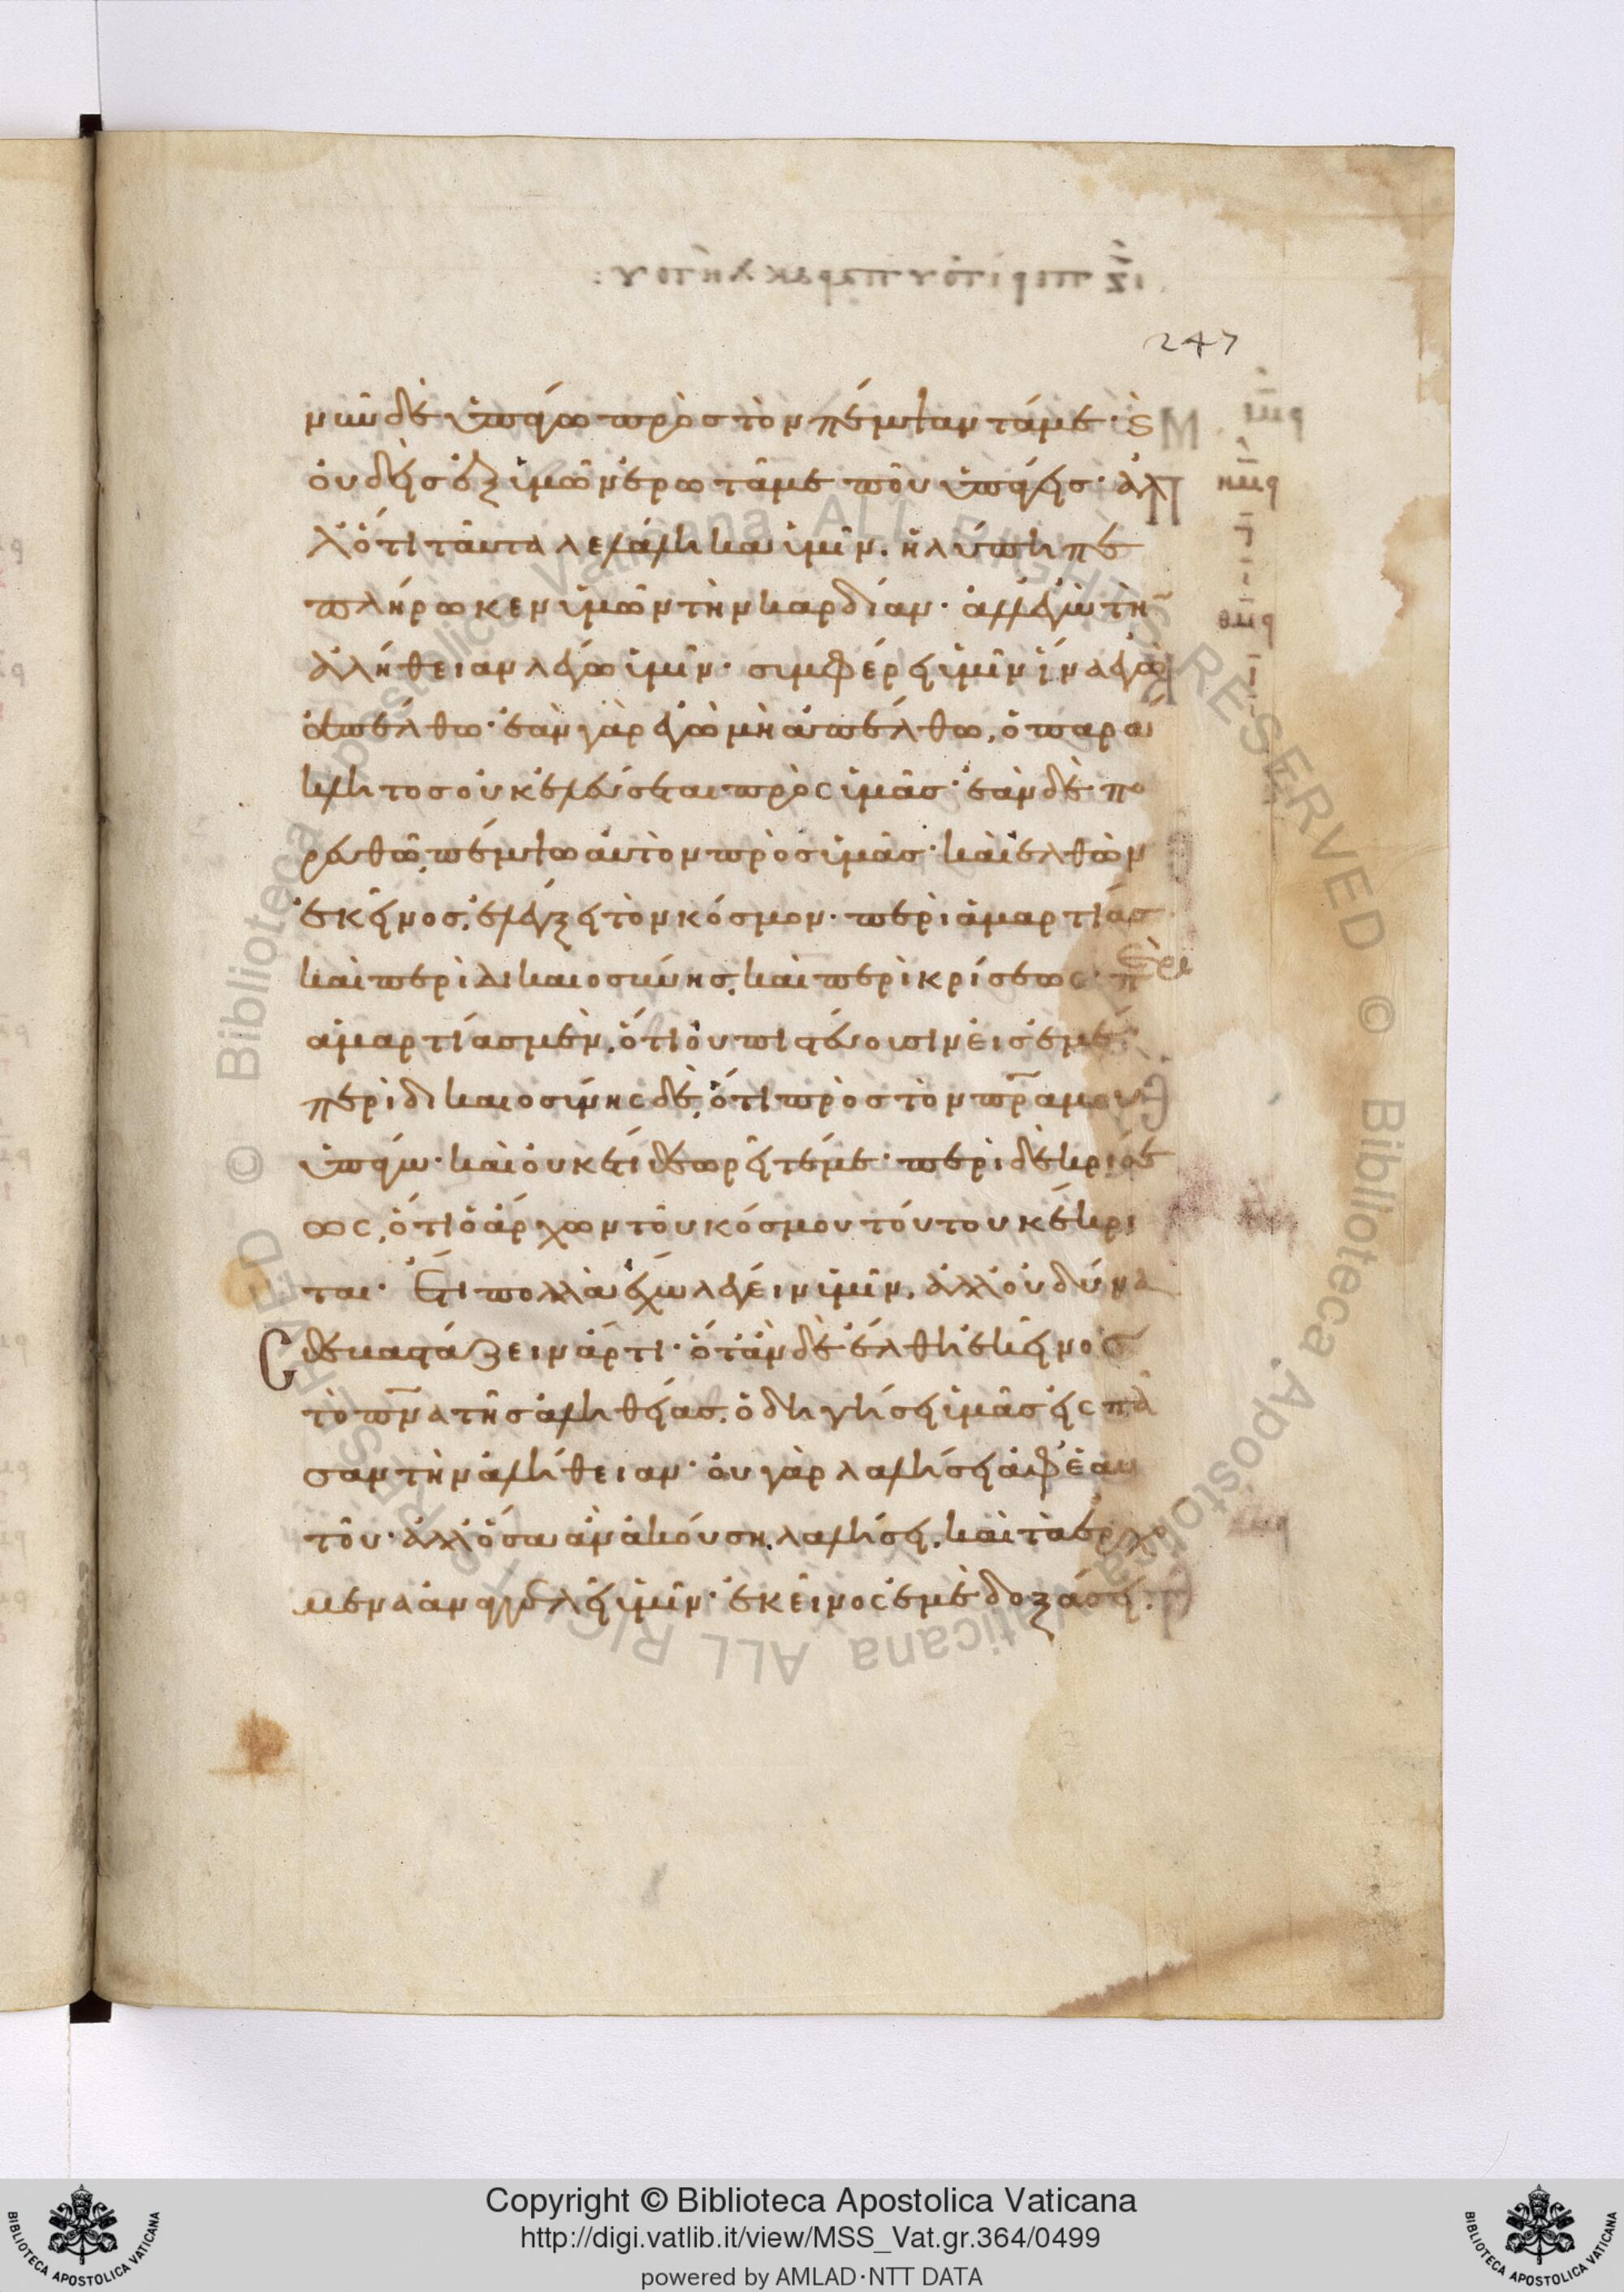 247
νῦν δὲ ὑπάγω πρὸς τὸν πέμψαντά με· ϗ
οὐδεὶς ἐξ ὑμῶν ἐρωτᾶ με ποῦ ὑπάγεις· ἀλ
λ' ὅτι ταῦτα λελάληκα ὑμῖν. ἡ λύπη πε
πλήρωκεν ὑμῶν τὴν καρδίαν· ἀλλ' ἐγὼ τὴ̄
ἀλήθειαν λέγω ὑμῖν· συμφέρει ὑμῖν ἵνα ἐγὼ
ἀπέλθω· ἐὰν γὰρ ἐγὼ μὴ ἀπέλθω, ὁ παρά
κλητος οὐκ ἐλεύσεται πρὸς ὑμᾶς· ἐὰν δὲ πο
ρευθῶ, πέμψω αὐτὸν πρὸς ὑμᾶς· καὶ ἐλθὼν
ἐκεῖνος, ἐλέγξει τὸν κόσμον· περὶ ἁμαρτίας
καὶ περὶ δικαιοσύνης, καὶ περὶ κρίσεως· π
ερὶ
ἁμαρτίας μὲν, ὅτι οὐ πιστεύουσιν εἰς ἐμέ·
περὶ δικαιοσύνης δὲ, ὅτι πρὸς τὸν πρ̅α μου
ὑπάγω· καὶ οὐκέτι θεωρεῖτέ με· περὶ δὲ κρίσε
ως, ὅτι ὁ ἄρχων τοῦ κόσμου τούτου κέκρι
ται· Ἔτι πολλὰ ἔχω λέγειν ὑμῖν, ἀλλ' οὐ δύνα
σθε βαστάζειν ἄρτι· ὅταν δὲ ἔλθη ἐκεῖνος
τὸ πν̅α τῆς ἀληθείας, ὁδηγήσει ὑμᾶς εἰς πᾶ
σαν τὴν ἀλήθειαν· οὐ γὰρ λαλήσει ἀφ' ἑαυ
τοῦ· ἀλλ' ὅσα ἂν ἀκούση, λαλήσει, καὶ τὰ ἐρχό
μενα ἀναγγελεῖ ὑμῖν· ἐκεῖνος ἐμὲ δοξάσει·
© Biblioteca Apostolica Vaticana ALL RIGHTS RESERVED
© Biblioteca Apostolica Vaticana ALL RIGHTS RESERVED
Copyright © Biblioteca Apostolica Vaticana
http://digi.vatlib.it/view/MSS_Vat.gr.364/0499
powered by AMLAD·NTT DATA
BIBLIOTECA APOSTOLICA VATICANA
BIBLIOTECA APOSTOLICA VATICANA